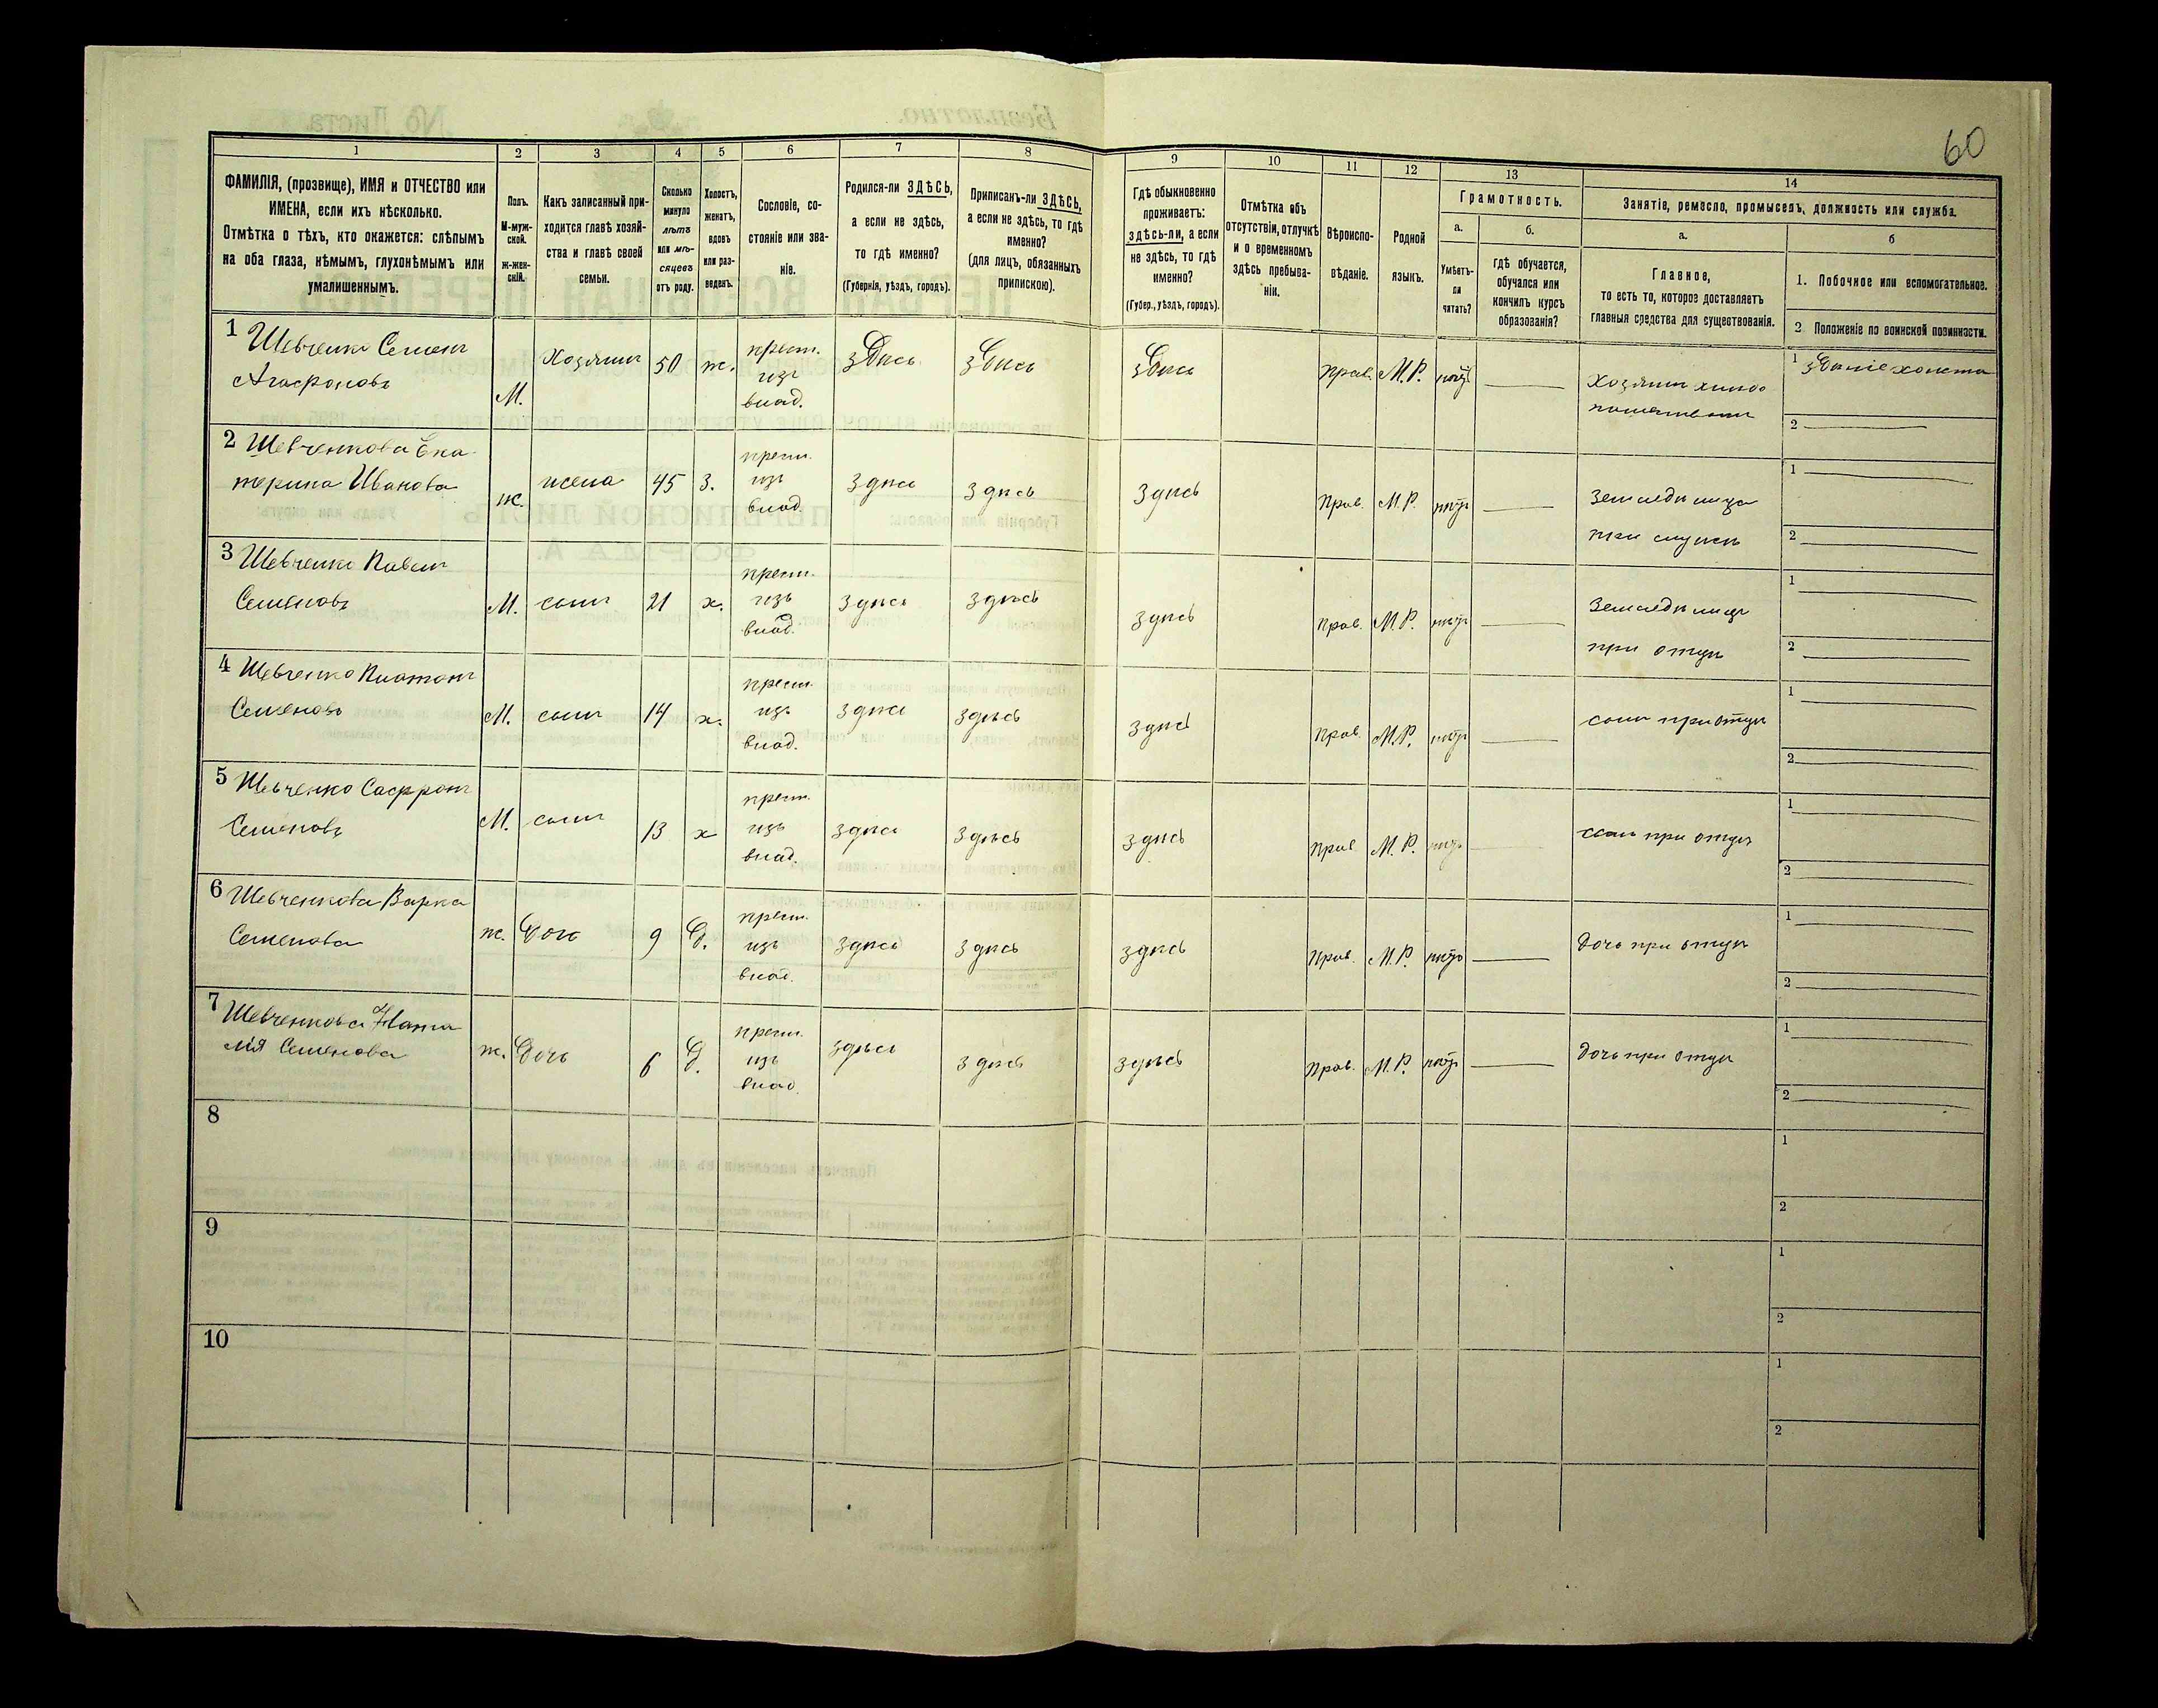 60
1
2
3
4
5
6
7
8
9
10
11
12
13
14
ФАМИЛІЯ, (прозвище), ИМЯ и ОТЧЕСТВО или
ИМЕНА, если ихъ нѣсколько.
Отмѣтка о тѣхъ, кто окажется: слѣпымъ
на оба глаза, нѣмымъ, глухонѣмымъ или
умалишеннымъ.
Полъ.
М-муж-
ской.
ж-жен-
скій.
Какъ записанный при-
ходится главѣ хозяй-
ства и главѣ своей
семьи.
Сколько
минуло
лѣтъ
или мѣ-
сяцевъ
отъ роду.
Холостъ,
женатъ,
вдовъ
или раз-
веденъ.
Сословіе, со-
стояніе или зва-
ніе.
Родился-ли ЗДѢСЬ,
а если не здѣсь,
то гдѣ именно?
(Губернія, уѣздъ, городъ).
Приписанъ-ли ЗДѢСЬ,
а если не здѣсь, то гдѣ
именно?
(для лицъ, обязанныхъ
припискою).
Гдѣ обыкновенно
проживаетъ:
здѣсь-ли, а если
не здѣсь, то гдѣ
именно?
(Губер., уѣздъ, городъ).
Отмѣтка объ
отсутствіи, отлучкѣ
и о временномъ
здѣсь пребыва-
ніи.
Вѣроиспо-
вѣданіе.
Родной
языкъ.
Грамотность.
а.
Умѣетъ-
ли
читать?
б.
гдѣ обучается,
обучался или
кончилъ курсъ
образованія?
Занятіе, ремесло, промыселъ, должность или служба.
а.
Главное,
то есть то, которое доставляетъ
главныя средства для существованія.
б
1. Побочное или вспомогательное.
2 Положеніе по воинской повинности.
1 Шевченко Семенъ
М.
Хозяинъ
50
ж.
крест.
изъ
влад.
здѣсь
здѣсь
здѣсь
прав.
М.Р.
нѣтъ
Хозяинъ
1
2
2 Шевченкова Ека-
терина Иванова
ж.
жена
45
З.
крест.
изъ
влад.
здѣсь
здѣсь
здѣсь
прав.
М.Р.
нѣтъ
1
2
3 Шевченко Павелъ
Семеновъ
М.
сынъ
21
х.
крест.
изъ
влад.
здѣсь
здѣсь
здѣсь
прав.
М.Р.
нѣтъ
при отцѣ
1
2
4 Шевченко Платонъ
Семеновъ
М.
сынъ
14
х.
крест.
изъ
влад.
здѣсь
здѣсь
здѣсь
прав.
М.Р.
нѣтъ
сынъ при отцѣ
1
2
5 Шевченко Сафронъ
Семеновъ
М.
сынъ
13
х
крест.
изъ
влад.
здѣсь
здѣсь
здѣсь
прав
М.Р.
нѣтъ
сынъ при отцѣ
1
2
6 Шевченкова Варка
Семенова
ж.
дочь
9
Д.
крест.
изъ
влад.
здѣсь
здѣсь
здѣсь
прав.
М.Р.
нѣтъ
дочь при отцѣ
1
2
7 Шевченкова Ната
лія Семенова
ж.
дочь
6
Д.
крест.
изъ
влад.
здѣсь
здѣсь
здѣсь
прав.
М.Р.
нѣтъ
дочь при отцѣ
1
2
8
1
2
9
1
2
10
1
2